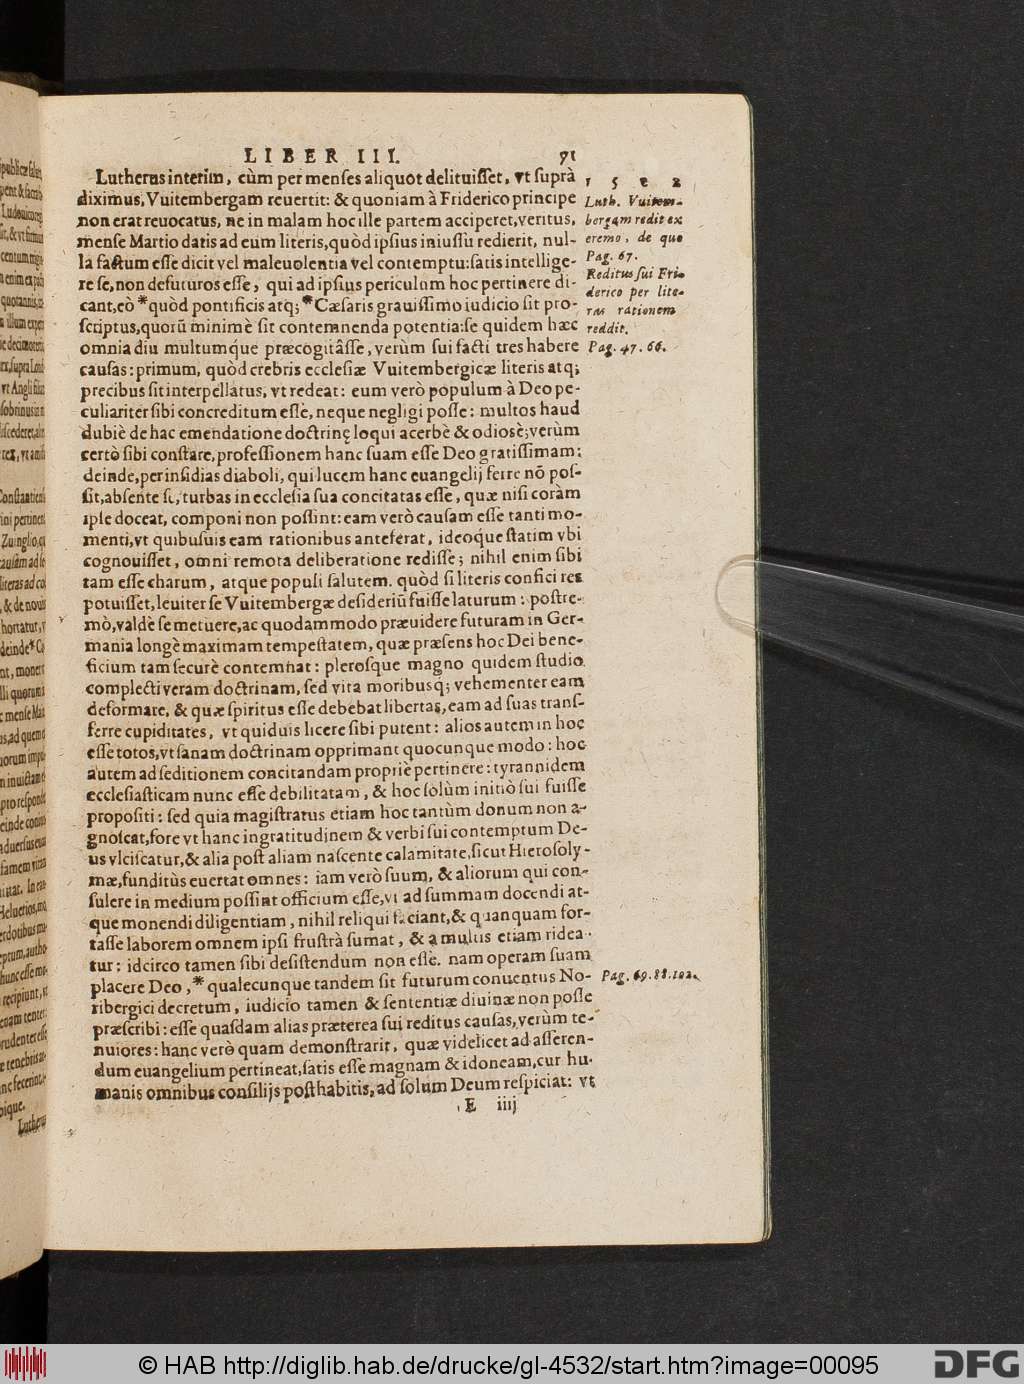 LIBER III. 71
Lutherus interim, cùm per menses aliquot delituisset, vt suprà
diximus, Vuitembergam reuertit: & quoniam à Friderico principe
non erat reuocatus, ne in malam hoc ille partem acciperet, veritus,
mense Martio datis ad eum literis, quòd ipsius iniussu redierit, nul-
la factum esse dicit vel maleuolentia vel contemptu: satis intellige-
re se, non defuturos esse, qui ad ipsius periculum hoc pertinere di-
cant, eò *quòd pontificis atq; *Cæsaris grauissimo iudicio sit pro-
scriptus, quorũ minimè sit contemnenda potentia: se quidem hæc
omnia diu multumque præcogitâsse, verùm sui facti tres habere
causas: primum, quòd crebris ecclesiæ Vuitembergicæ literis atq;
precibus sit interpellatus, vt redeat: eum verò populum à Deo pe-
culiariter sibi concreditum esse, neque negligi posse: multos haud
dubiè de hac emendatione doctrinę loqui acerbè & odiosè; verùm
certò sibi constare, professionem hanc suam esse Deo gratissimam:
deinde, per insidias diaboli, qui lucem hanc euangelij ferre nõ pos-
sit, absente se, turbas in ecclesia sua concitatas esse, quæ nisi coràm
ipse doceat, componi non possint: eam verò causam esse tanti mo-
menti, vt quibusuis eam rationibus anteferat, ideoque statim vbi
cognouisset, omni remota deliberatione redisse; nihil enim sibi
tam esse charum, atque populi salutem. quòd si literis confici res
potuisset, leuiter se Vuitembergæ desideriũ fuisse laturum: postre-
mò, valdè se metuere, ac quodammodo præuidere futuram in Ger-
mania longè maximam tempestatem, quæ præsens hoc Dei bene-
ficium tam securè contemnat: plerosque magno quidem studio
complecti veram doctrinam, sed vita moribusq; vehementer eam
deformare, & quæ spiritus esse debebat libertas, eam ad suas trans-
ferre cupiditates, vt quiduis licere sibi putent: alios autem in hoc
esse totos, vt sanam doctrinam opprimant quocunque modo: hoc
autem ad seditionem concitandam propriè pertinere: tyrannidem
ecclesiasticam nunc esse debilitatam, & hoc solùm initiò sui fuisse
propositi: sed quia magistratus etiam hoc tantùm donum non a-
gnoscat, fore vt hanc ingratitudinem & verbi sui contemptum De-
us vlciscatur, & alia post aliam nascente calamitate, sicut Hierosoly-
mæ, funditùs euertat omnes: iam verò suum, & aliorum qui con-
sulere in medium possint officium esse, vt ad summam docendi at-
que monendi diligentiam, nihil reliqui faciant, & quanquam for-
tasse laborem omnem ipsi frustrà sumat, & a multis etiam ridea-
tur: idcirco tamen sibi desistendum non esse. nam operam suam
placere Deo, *qualecunque tandem sit futurum conuentus No-
ribergici decretum, iudicio tamen & sententiæ diuinæ non posse
præscribi: esse quasdam alias præterea sui reditus causas, verùm te-
nuiores: hanc verò quam demonstrarit, quæ videlicet ad asseren-
dum euangelium pertineat, satis esse magnam & idoneam, cur hu-
manis omnibus consilijs posthabitis, ad solum Deum respiciat: vt
E iiij
1 5 2 2
Luth. Vuitem-
bergam redit ex
eremo, de quo
Pag. 67.
Reditus sui Fri-
derico per lite-
ras rationem
reddit.
Pag. 47. 66.
Pag. 69. 88. 102.
© HAB http://diglib.hab.de/drucke/gl-4532/start.htm?image=00095
DFG